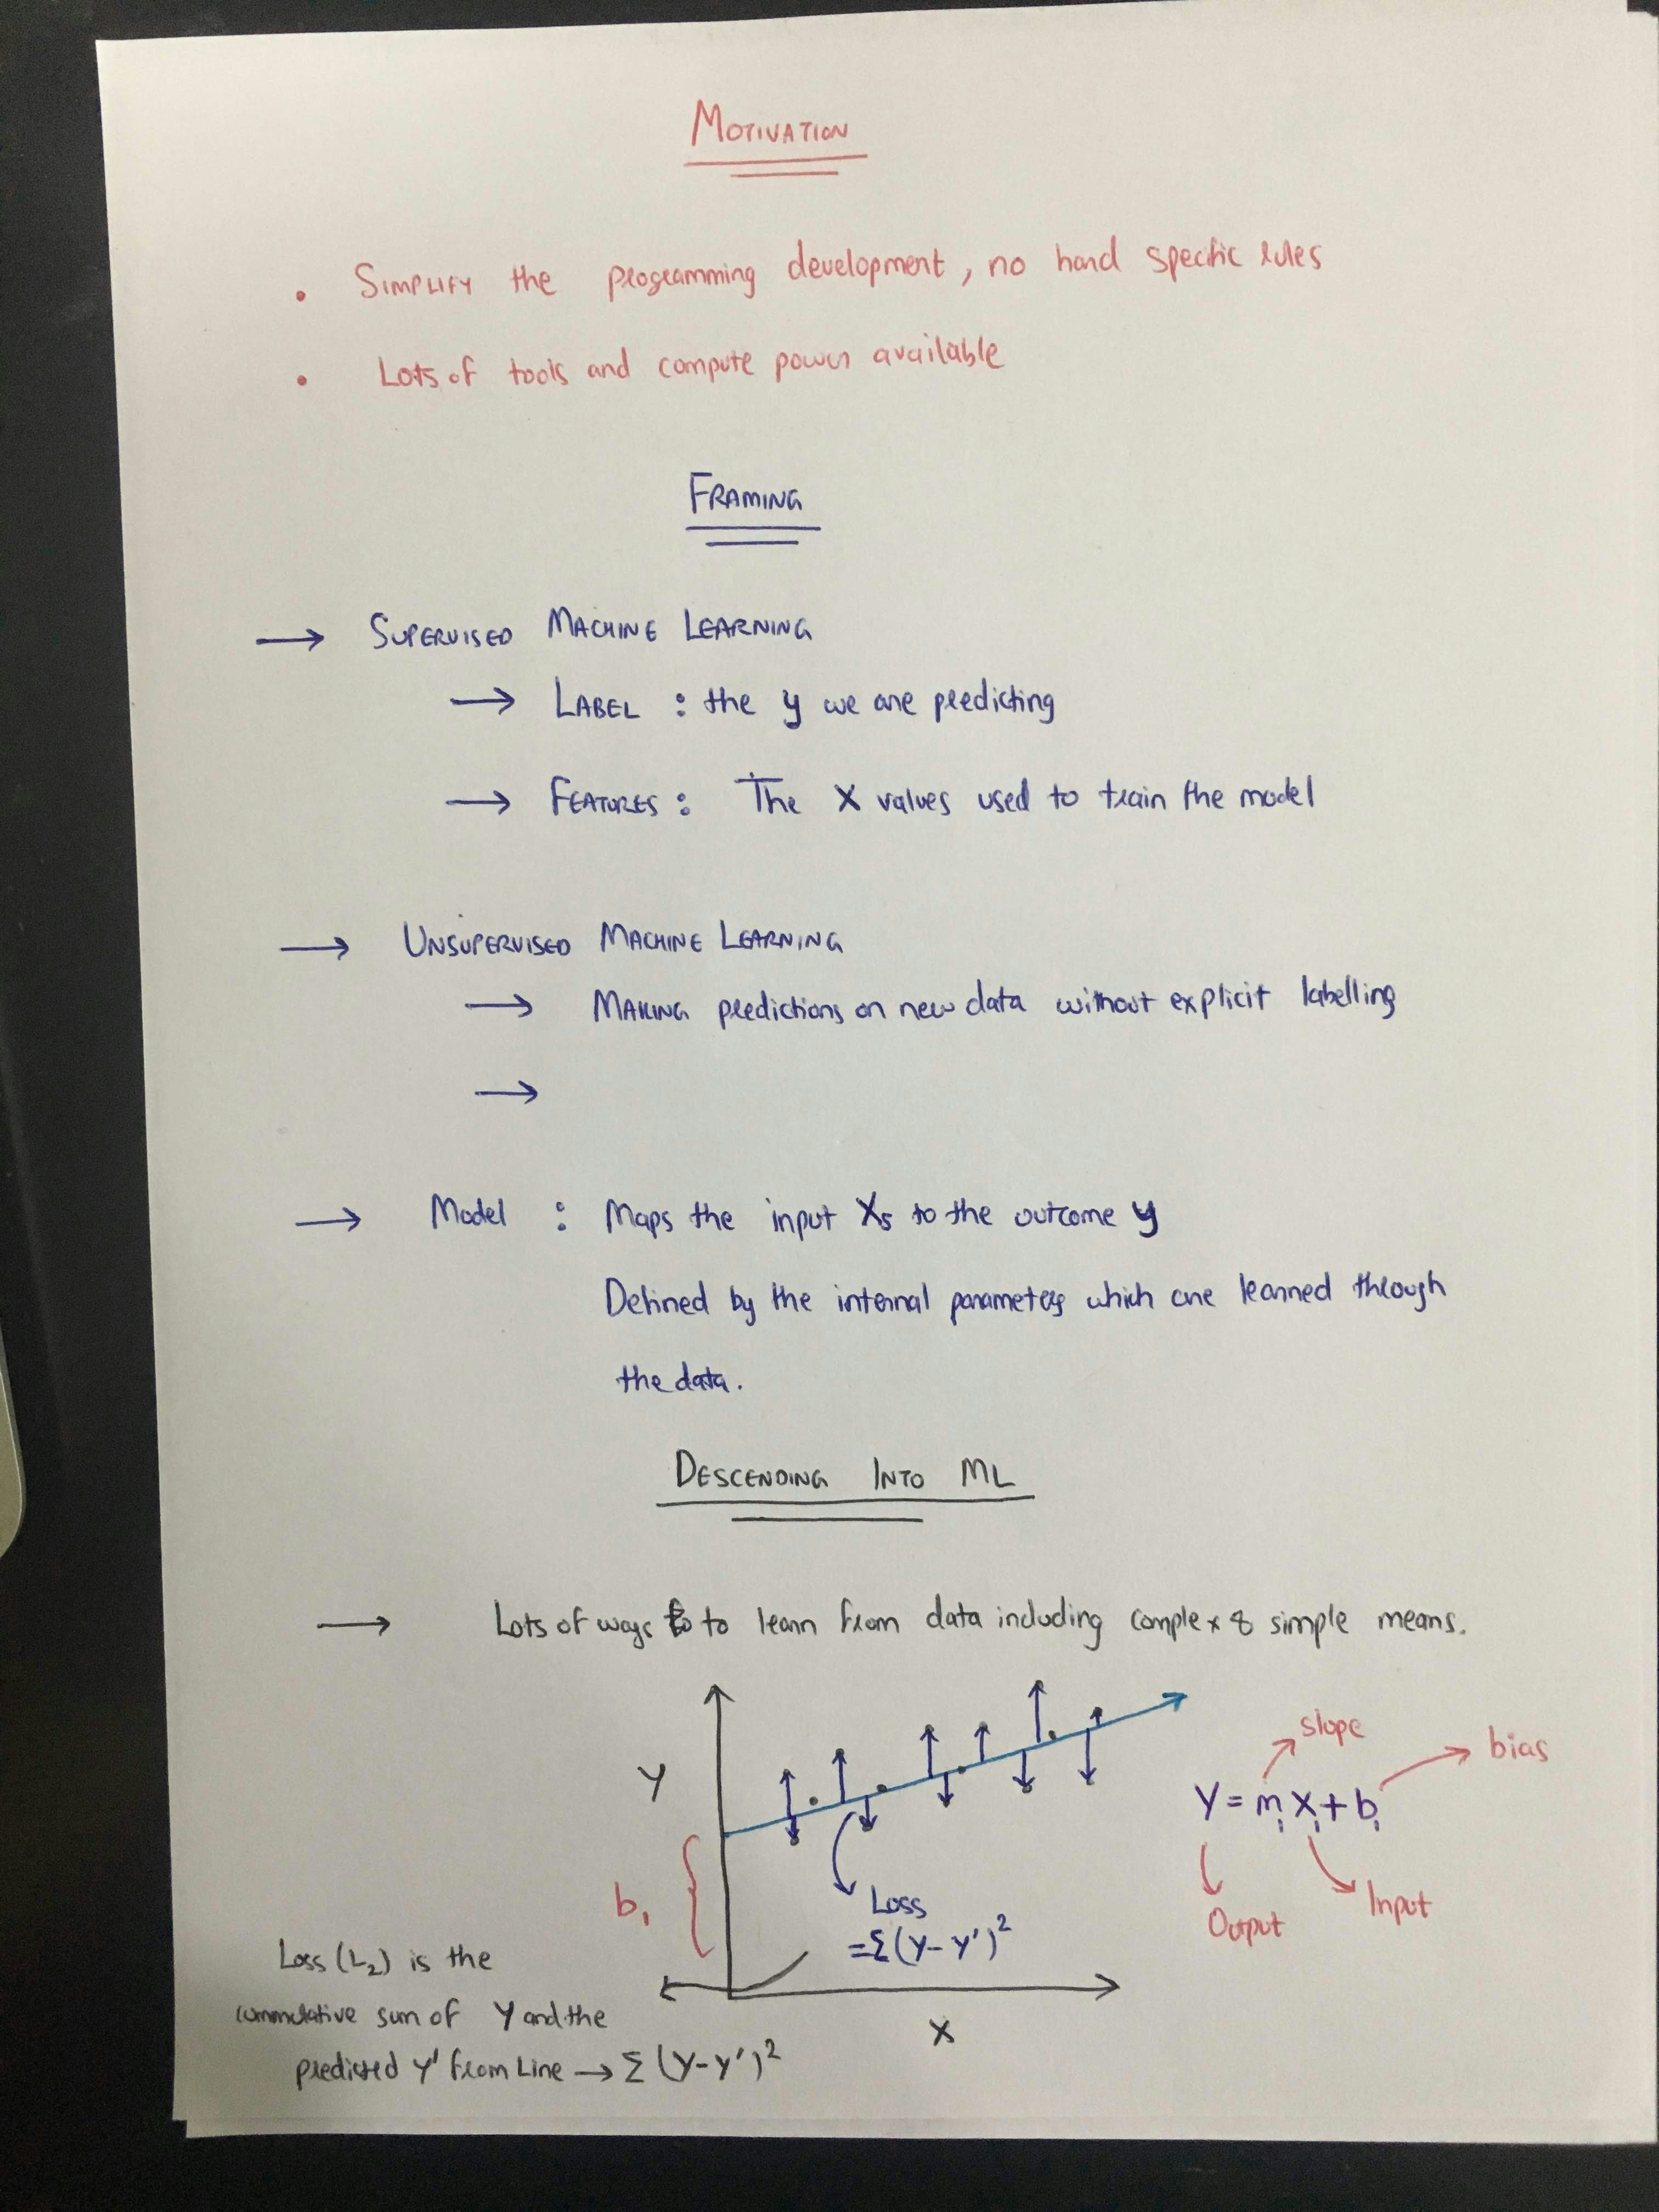 MOTIVATION
• SIMPLIFY the programming development, no hand specific rules
• Lots of tools and compute power available
FRAMING
→ SUPERVISED MACHINE LEARNING
→ LABEL : the y we are predicting
→ FEATURES : The X values used to train the model
→ UNSUPERVISED MACHINE LEARNING
→ MAKING predictions on new data without explicit labelling
→
→ Model : Maps the input Xs to the outcome y
Defined by the internal parameters which are learned through
the data.
DESCENDING INTO ML
→ Lots of ways to to learn from data including complex & simple means.
slope
bias
Y
Y = m₁x₁+b₁
b₁
Loss
Input
Output
=Σ(y-y')²
Loss (L₂) is the
cummulative sum of Y and the
X
predicted y' from Line → Σ (y-y')²